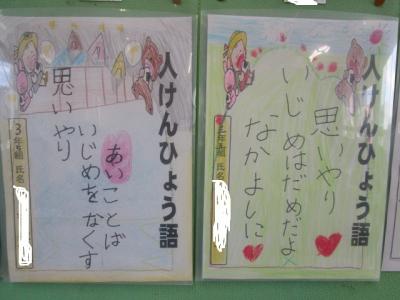 人けんひょう語
あいことば
いじめをなくす
思いやり
3年 組 氏名
人けんひょう語
思いやり
いじめはだめだよ
なかよしに
年 組 氏名